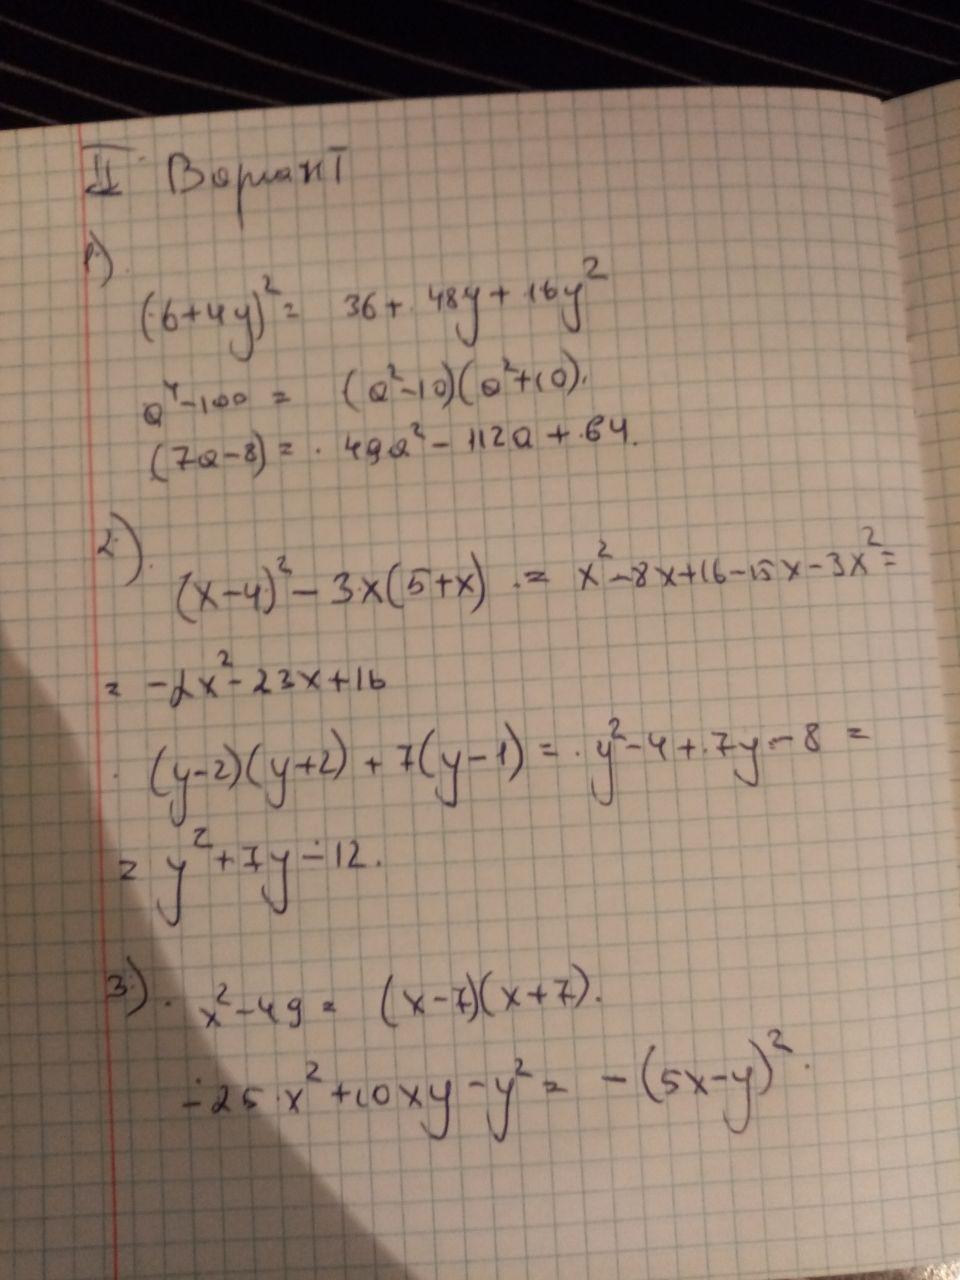 II Вариант
1).
(6+4y)² = 36 + 48y + 16y²
a⁴-100 = (a²-10)(a²+10).
(7a-8) = 49a² - 112a + 64.
2).
(x-4)² - 3x(5+x) = x²-8x+16-15x-3x² =
= -2x²-23x+16
(y-2)(y+2) + 7(y-1) = y²-4+7y-8 =
= y²+7y-12.
3).
x²-49 = (x-7)(x+7).
-25x²+10xy-y² = -(5x-y)².